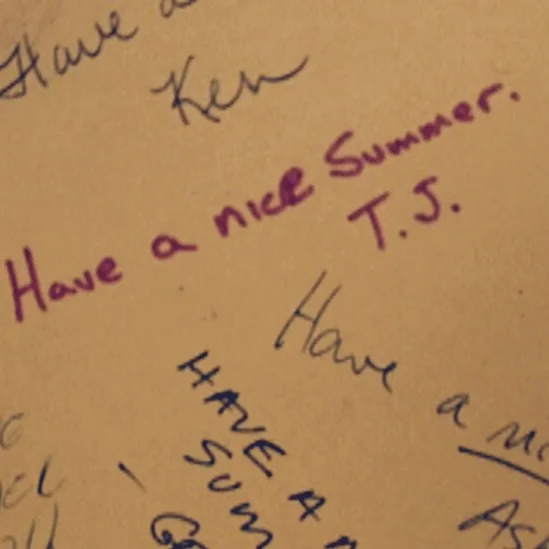 Have a
Ken
Have a nice Summer.
T.J.
Have a
HAVE A
SUM